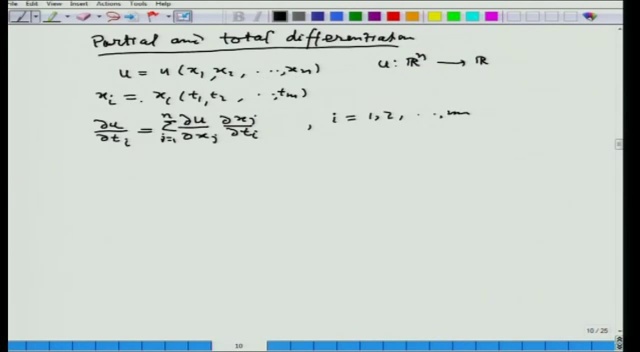 File Edit View Insert Actions Tools Help
Partial and total differentiation
u = u (x₁, x₂, ..., xₙ) u: ℝⁿ → ℝ
xᵢ = xᵢ (t₁, t₂, ..., tₘ)
∂u/∂tᵢ = Σⁿᵢ₌₁ ∂u/∂xⱼ ∂xⱼ/∂tᵢ , i = 1, 2, ..., m
10 / 25
10